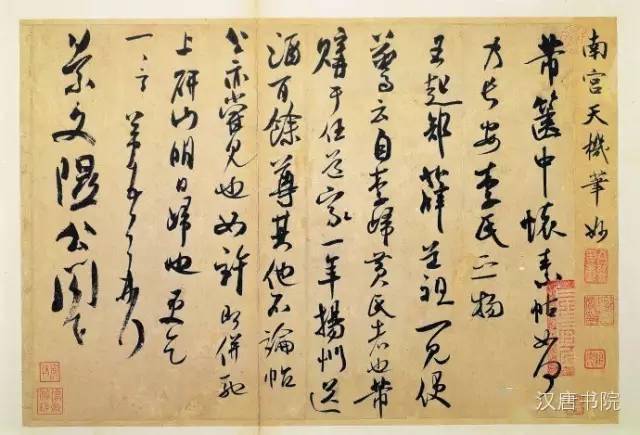 南宮天機筆妙
芾篋中懷素帖如何
乃長安李氏之物
王起部薛道祖一見便
驚云自李歸黃氏者也芾
購于任道家一年揚州送
酒百餘尊其他不論帖
公亦嘗見也如許即併馳
上研山明日歸也更乞
一言芾頓首再拜
景文隰公閣下
汉唐书院